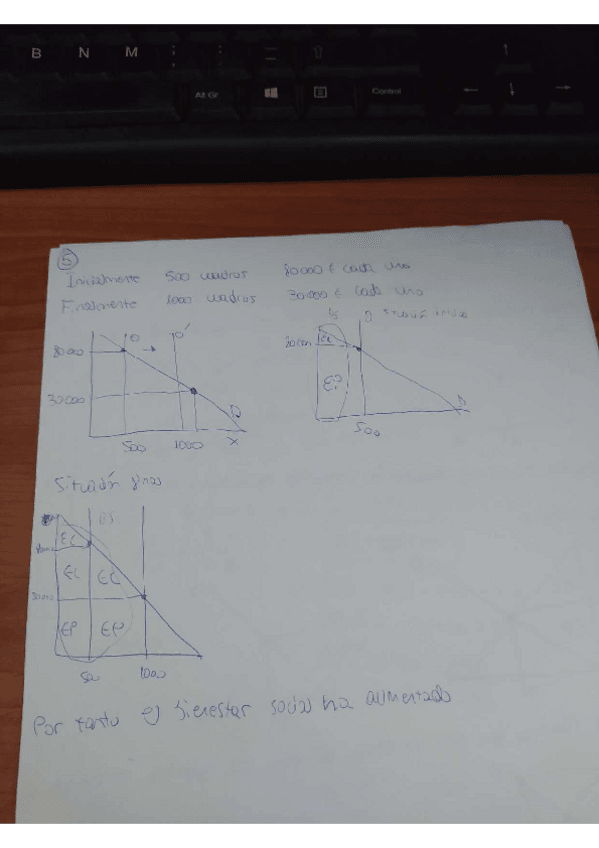 B N M ; : _ ⇧ ↑
Alt Gr Control ← ↓ →
5
Inicialmente 500 cuadros 80000 € cada uno
Finalmente 1000 cuadros 30.000 € cada uno
O O'
80000
30000
D
500 1000 X
EC
EP
D
500
Situación final
BS
EC
EC EC
30000
EP EP
500 1000
Por tanto el bienestar social ha aumentado